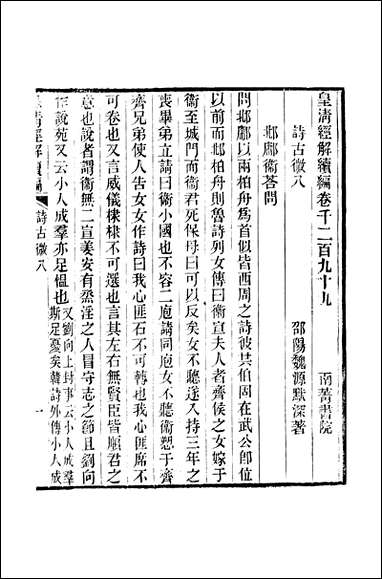 皇淸經解續編卷千二百九十九
南菁書院
詩古微八
邵陽魏源默深著
邶鄘衞荅問
問邶鄘以兩柏舟爲首似皆西周之詩彼共伯固在武公卽位
以前而邶柏舟則魯詩列女傳曰衞宣夫人者齊侯之女嫁于
衞至城門而衞君死保母曰可以反矣女不聽遂入持三年之
喪畢弟立請曰衞小國也不容二庖請同庖女不聽衞愬于齊
齊兄弟使人吿女女作詩曰我心匪石不可轉也我心匪席不
可卷也又言威儀棣棣不可選也言其左右無賢臣皆順君之
意也說者謂衞無二宣姜安有烝淫之人冒守志之節且劉向
作說苑又云小人成羣亦足慍也又劉向上封事云小人成羣
斯足憂矣韓詩外傳小人成
清經解續編
詩古微八
一